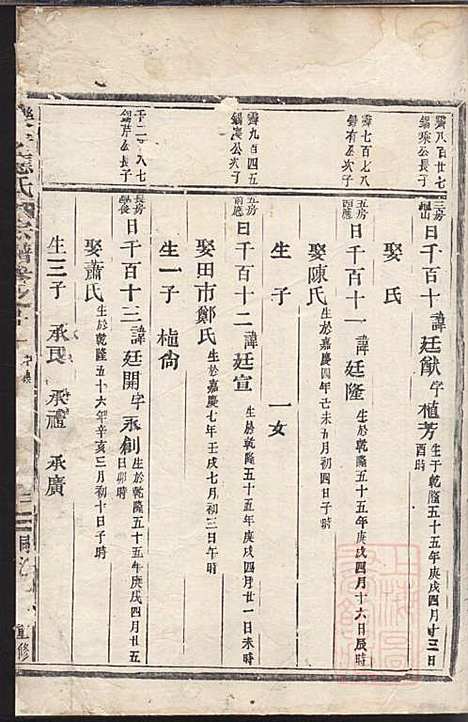 霽八百廿七
錫琛公長子
三房
日千百十諱廷猷字植芳生于乾隆五十五年庚戌四月十三日
酉時
娶 氏
霽七百七八
錫有公次子
五房
日千百十一諱廷隆生於乾隆五十五年庚戌四月十六日辰時
娶陳氏生於嘉慶四年己未五月初四日子時
生 子 一女
霽九百四五
錫 公次子
五房
前應
日千百十二諱廷宣生於乾隆五十五年庚戌四月廿一日未時
娶田市鄭氏生於嘉慶七年壬戌七月初三日午時
生一子 植尙
千二 八七
錫芹公長子
長房
日千百十三諱廷開字永創生於乾隆五十五年庚戌四月廿五
日卯時
娶蕭氏生於乾隆五十六年辛亥三月初十日子時
生三子 承民 承禮 承廣
氏宗譜
重修